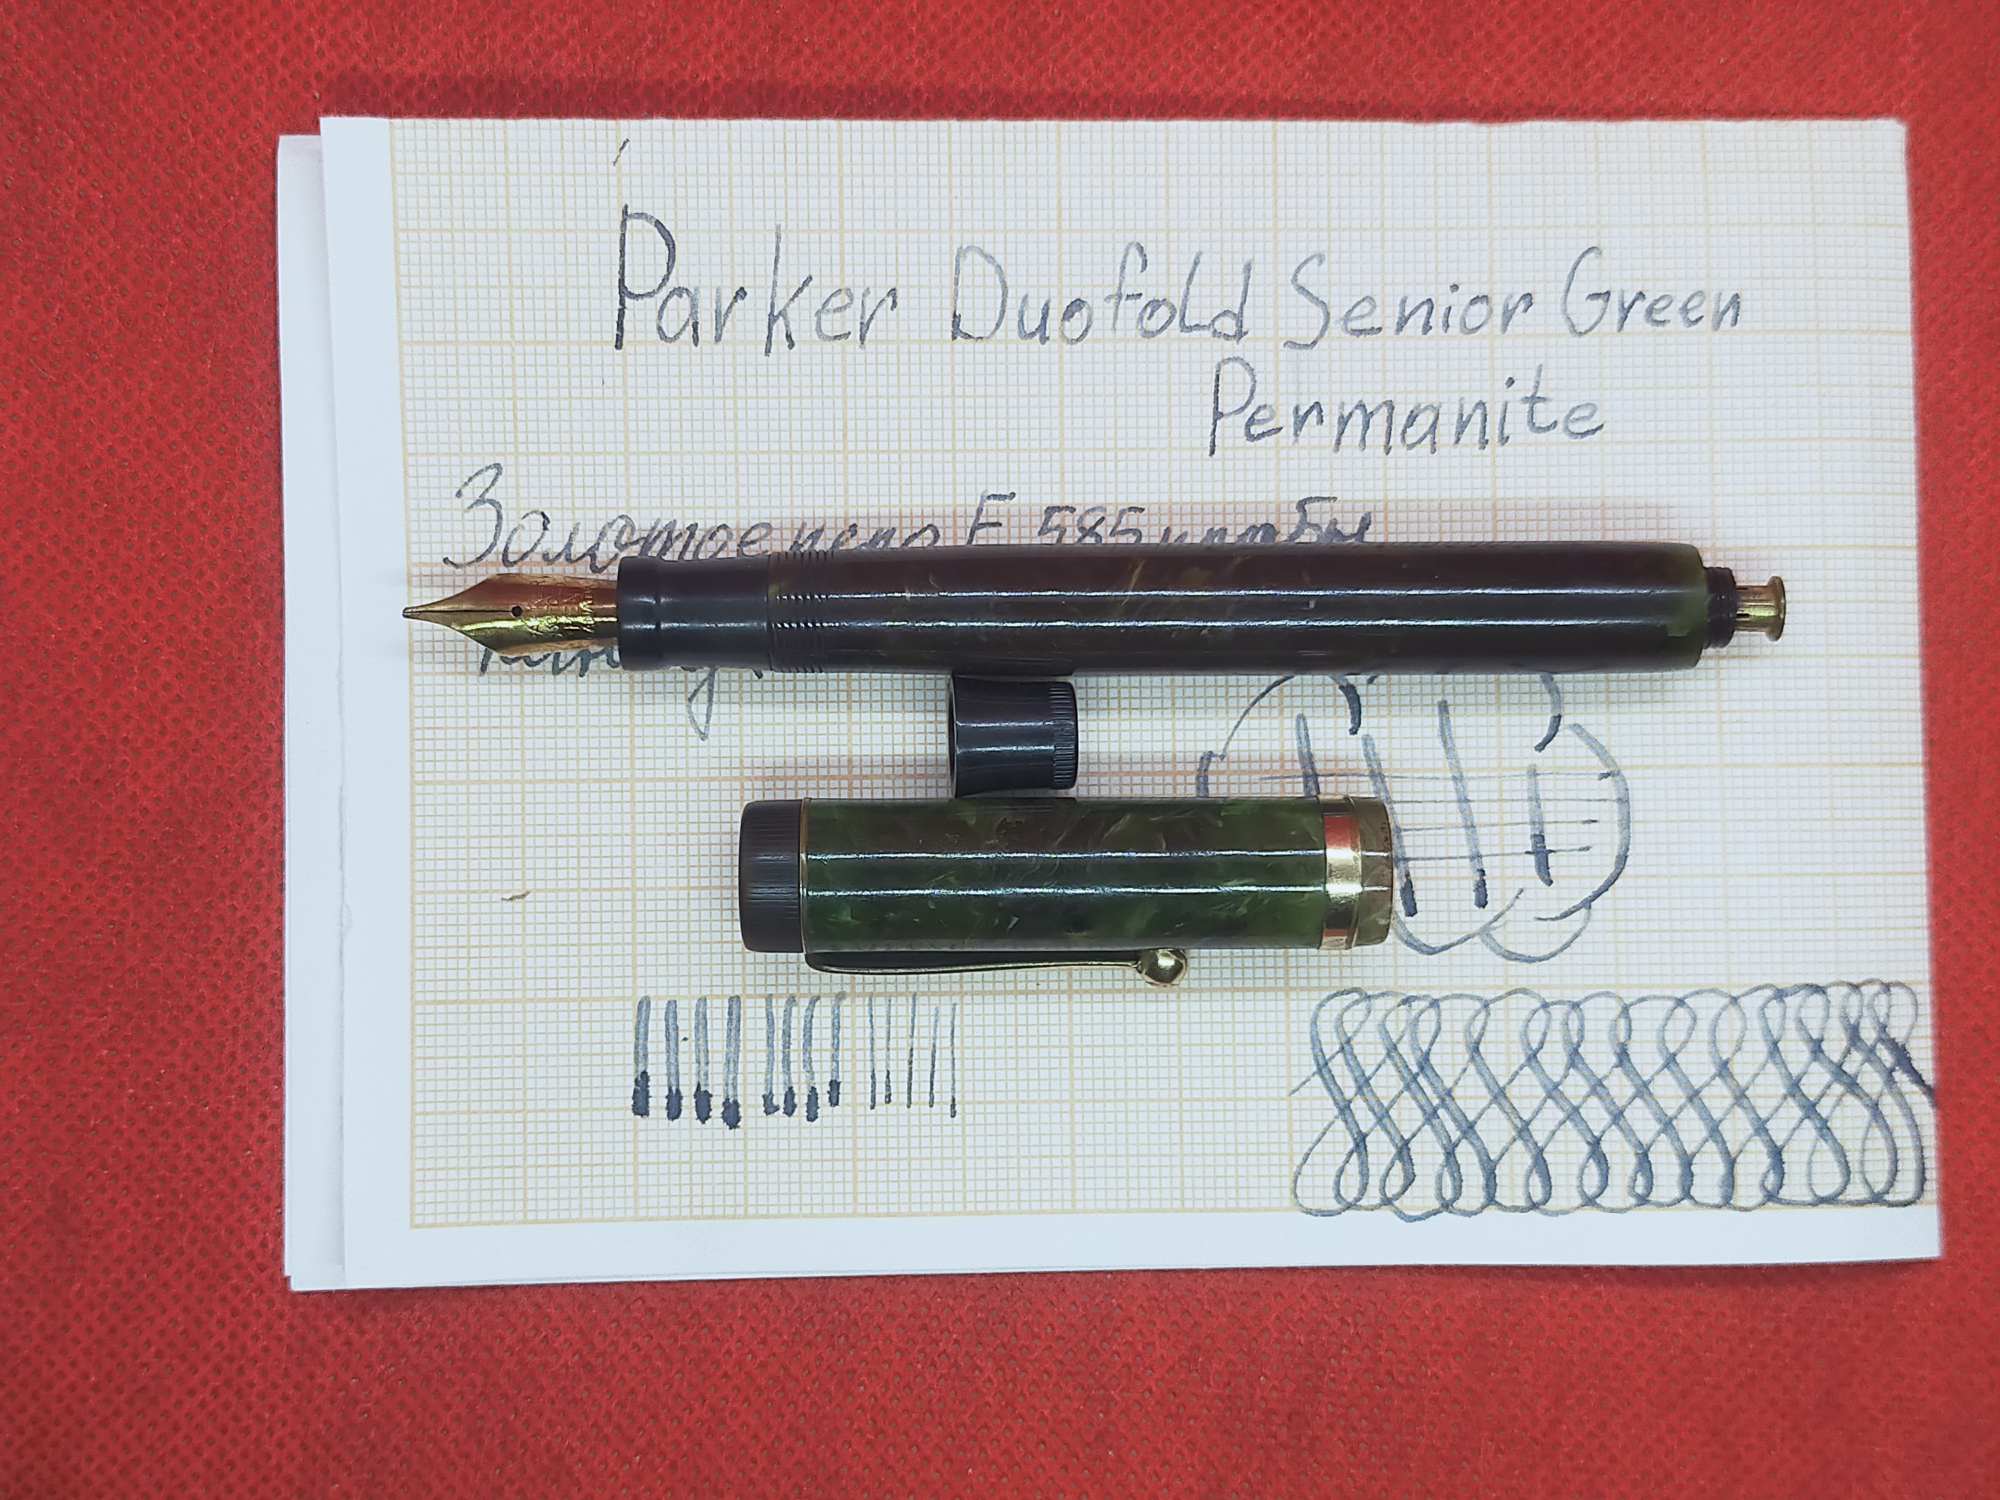 Parker Duofold Senior Green
Permanite
Золотое перо F 585 пробы